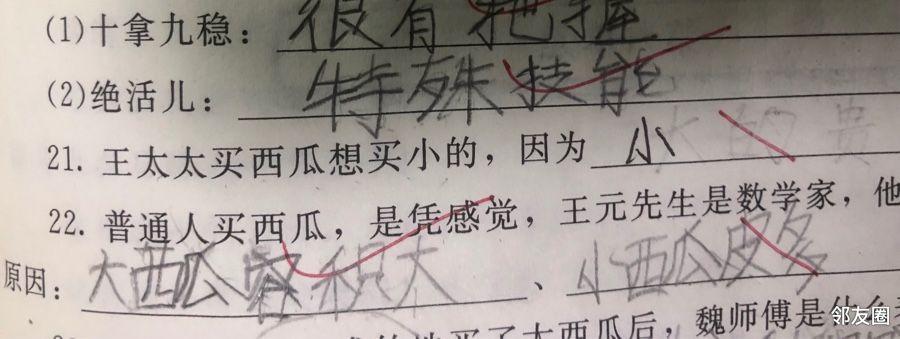 (1)十拿九稳：很有把握
(2)绝活儿：特殊技能
21. 王太太买西瓜想买小的，因为小大的贵
22. 普通人买西瓜，是凭感觉，王元先生是数学家，他
原因：大西瓜容积大、小西瓜皮多
买了大西瓜后，魏师傅是什么
邻友圈